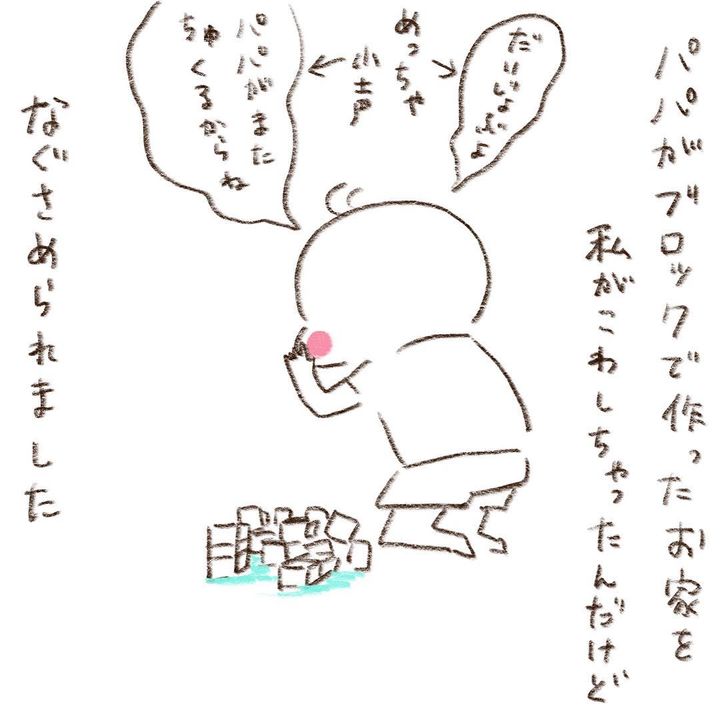 パパがブロックで作ったお家を
私がこわしちゃったんだけど
だいじょぶよ
めっちゃ
小声
パパがまた
ちゅくるからね
なぐさめられました